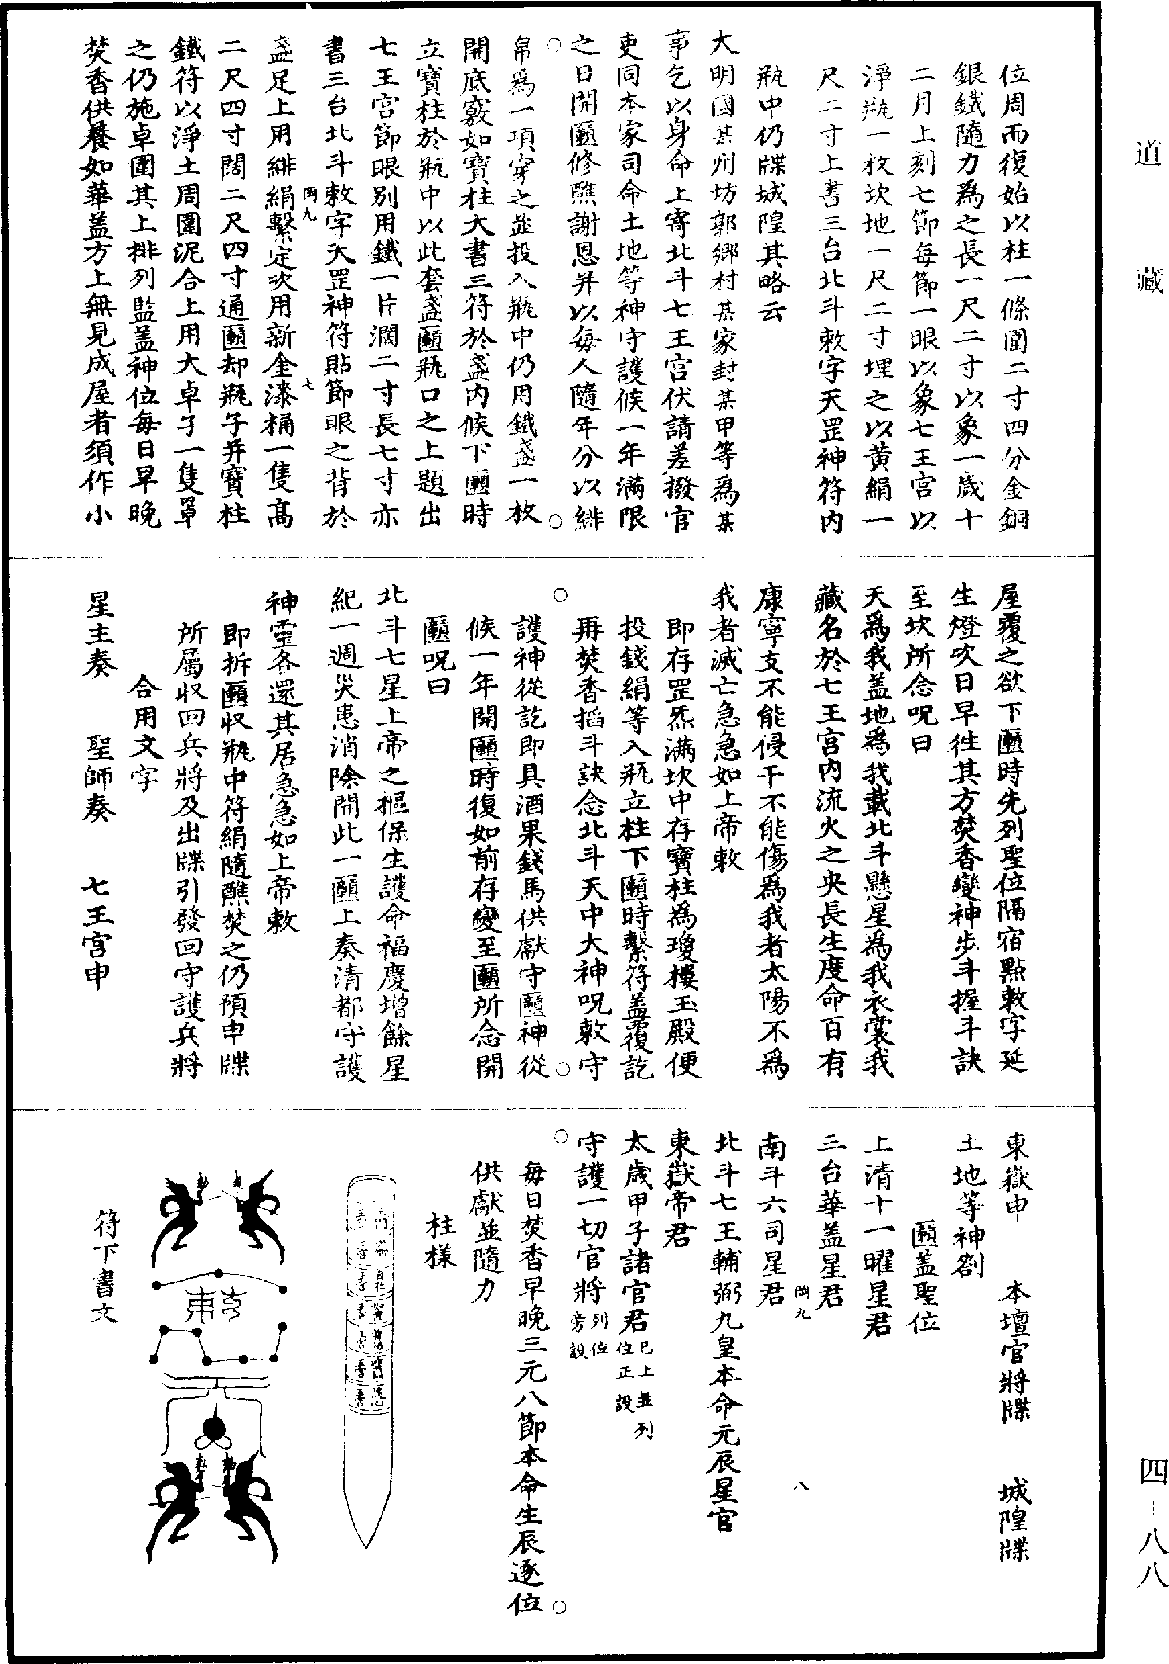 道藏
四-八八
位周而復始以柱一條圍二寸四分金銅
銀鐵隨力為之長一尺二寸以象一歲十
二月上刻七節每節一眼以象七王宮以
淨瓶一枚坎地一尺二寸埋之以黃絹一
尺二寸上書三台北斗敕字天罡神符內
瓶中仍牒城隍其略云
大明國某州坊郭鄉村某家封某甲等為某
事乞以身命上寄北斗七王宮伏請差撥官
吏同本家司命土地等神守護候一年滿限
之日開匶修醮謝恩并以每人隨年分以緋
帛為一項穿之並投入瓶中仍用鐵盞一枚
開底竅如寶柱大書三符於盞內候下匶時
立寶柱於瓶中以此套盞匶瓶口之上題出
七王宮節眼別用鐵一片濶二寸長七寸亦
書三台北斗敕字天罡神符貼節眼之背於
盞足上用緋絹繫定次用新金漆桶一隻高
二尺四寸闊二尺四寸通匶却瓶子并寶柱
鐵符以淨土周圍泥合上用大卓子一隻單
之仍施卓圍其上排列監蓋神位每日早晚
焚香供養如華蓋方上無見成屋者須作小
屋覆之欲下匶時先列聖位隔宿點敕字延
生燈次日早往其方焚香變神步斗握斗訣
至坎所念呪曰
天為我蓋地為我載北斗懸星為我衣裳我
藏名於七王宮內流火之央長生度命百有
康寧支不能侵干不能傷為我者太陽不為
我者滅亡急急如上帝敕
即存罡炁滿坎中存寶柱為瓊樓玉殿便
投錢絹等入瓶立柱下匶時繫符蓋覆訖
再焚香搯斗訣念北斗天中大神呪敕守
護神從訖即具酒果錢馬供獻守匶神從
候一年開匶時復如前存變至匶所念開
匶呪曰
北斗七星上帝之樞保生護命福慶增餘星
紀一週災患消除開此一匶上奏清都守護
神靈各還其居急急如上帝敕
即折匶収瓶中符絹隨醮焚之仍預申牒
所屬収回兵將及出牒引發回守護兵將
合用文字
星主奏　聖師奏　七王宮申
東嶽申　本壇官將牒　城隍牒
土地等神劄
匶蓋聖位
上清十一曜星君
三台華蓋星君
南斗六司星君
北斗七王輔弼九皇本命元辰星官
東嶽帝君
太歲甲子諸官君已上並列位正設
守護一切官將列位旁設
每日焚香早晚三元八節本命生辰逐位
供獻並隨力
柱樣
符下書文